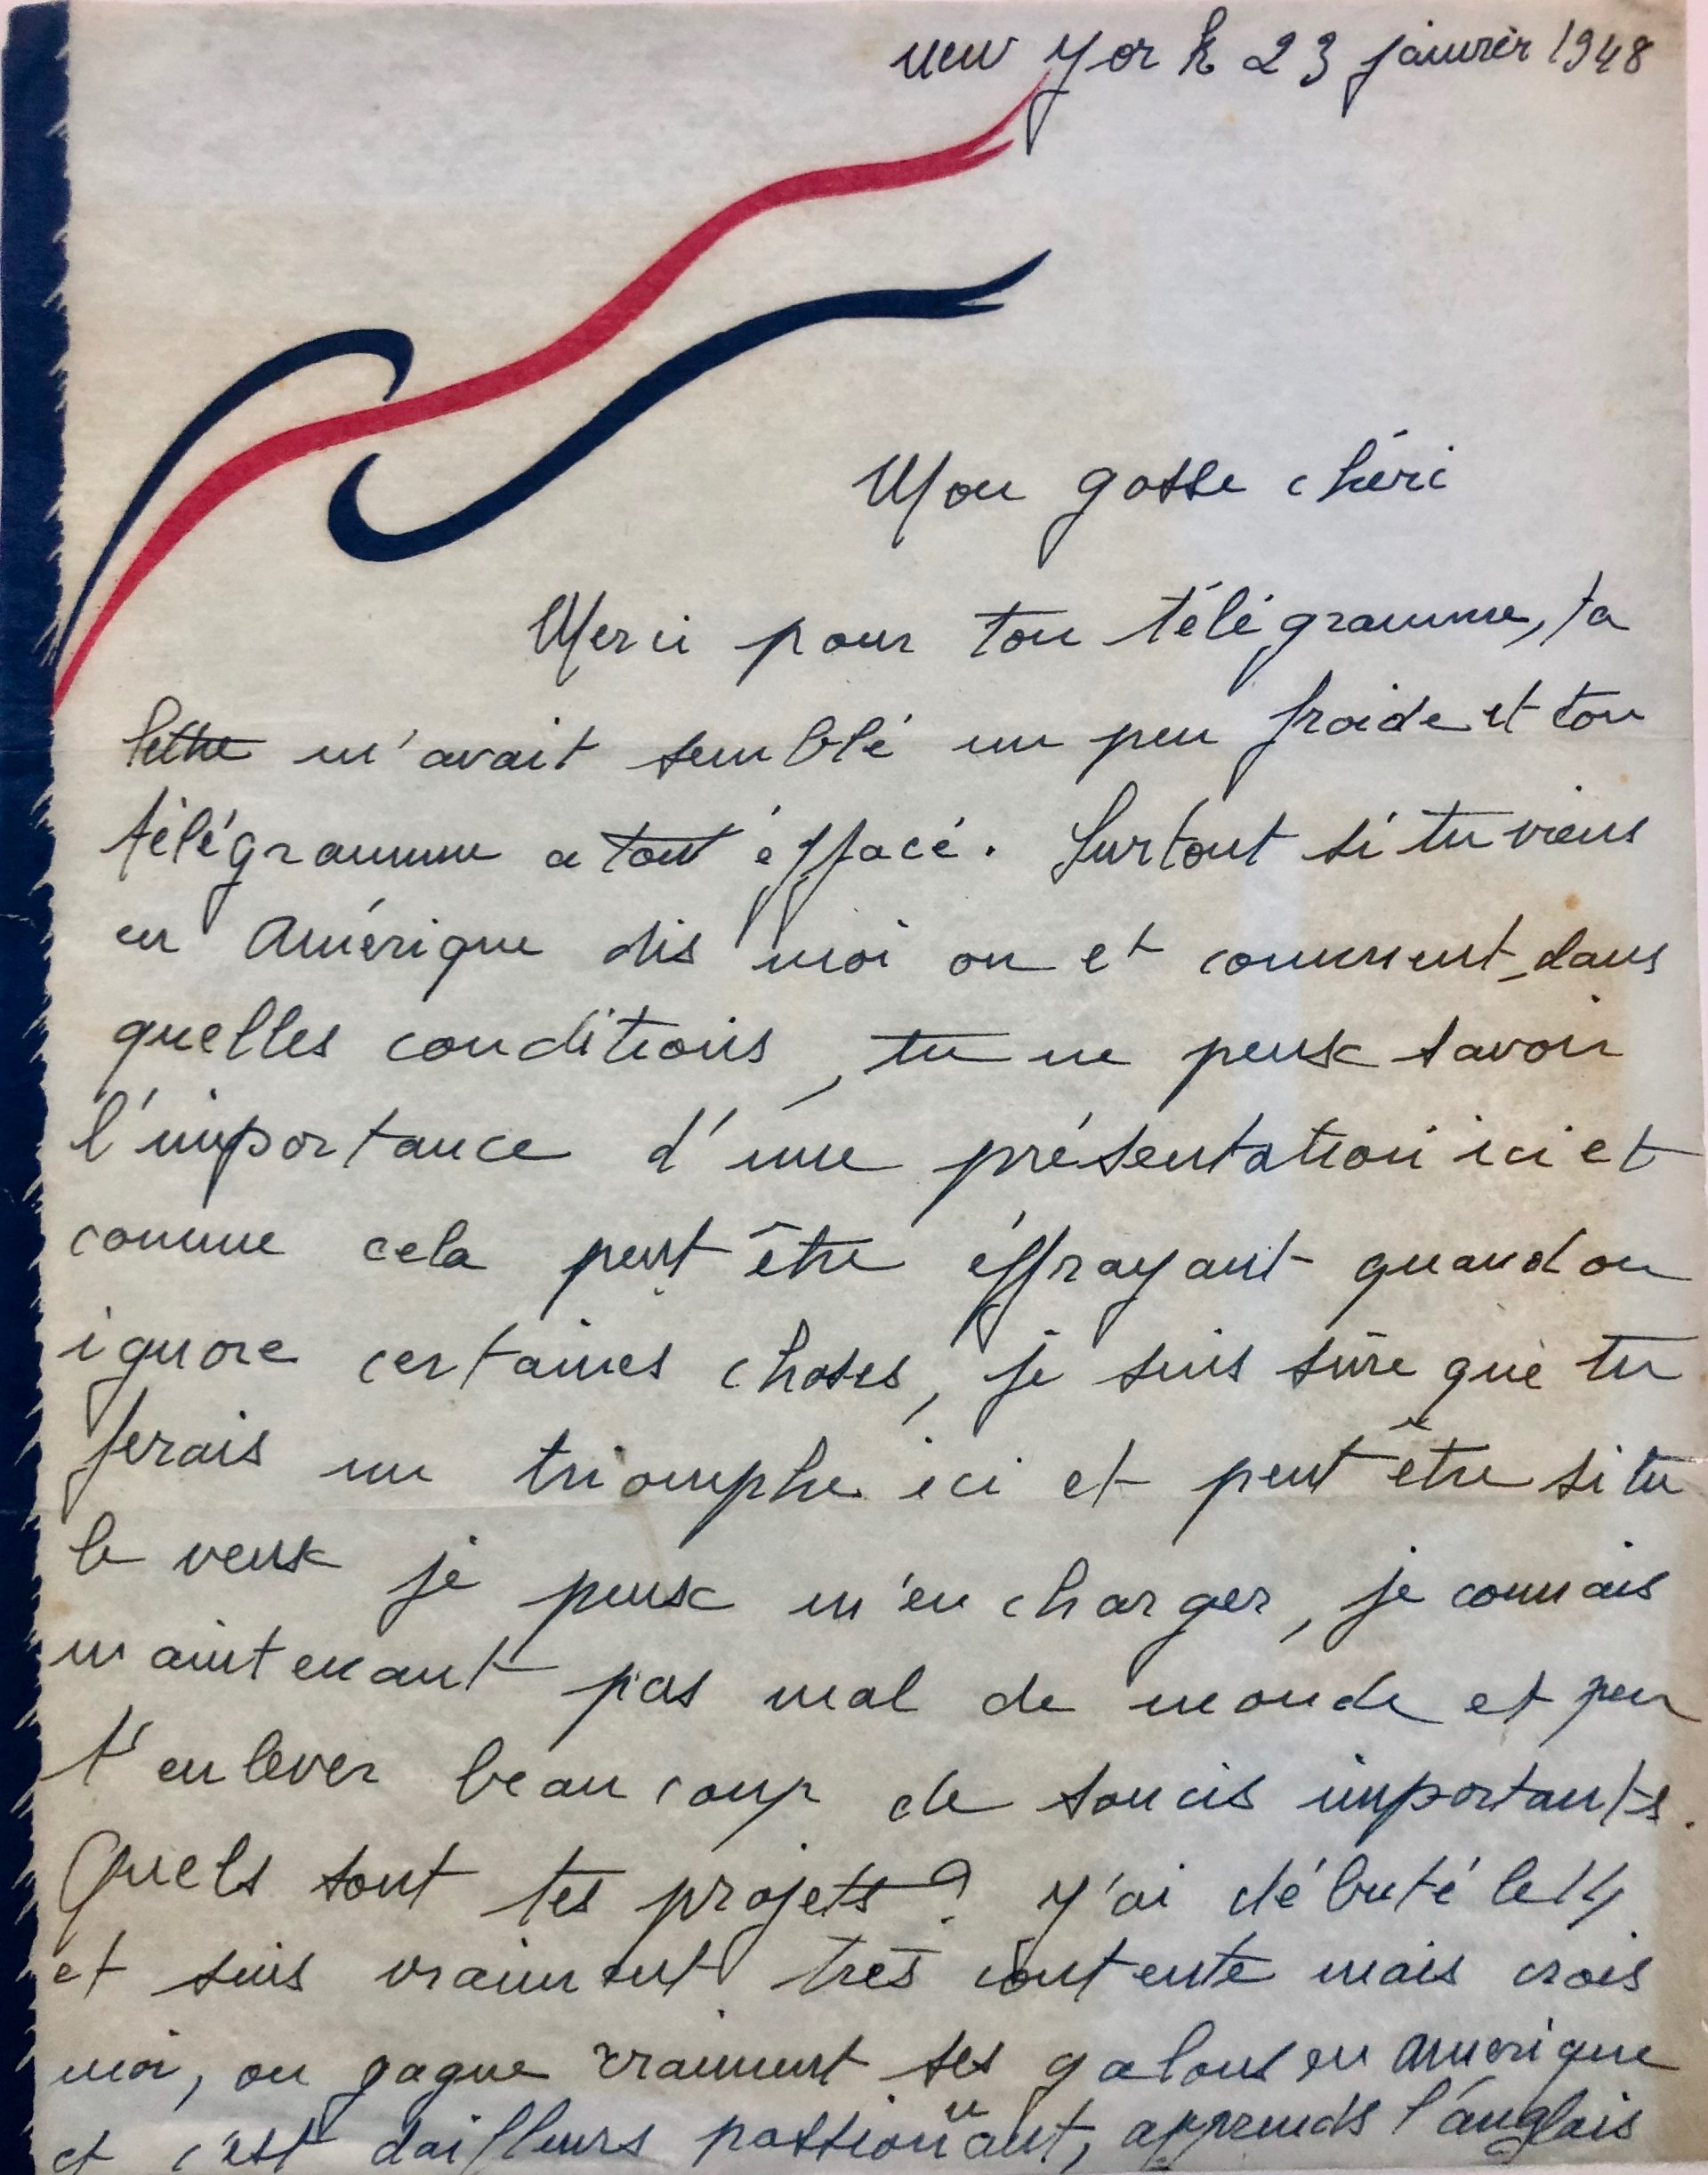 New York 23 janvier 1948
Mon gosse chéri
Merci pour ton télégramme, ta
lettre m'avait semblé un peu froide et ton
télégramme a tout éffacé. Surtout si tu viens
en Amérique dis moi ou et comment, dans
quelles conditions, tu ne peux savoir
l'importance d'une présentation ici et
comme cela peut être éffrayant quand on
ignore certaines choses, je suis sûre que tu
ferais un triomphe ici et peut être si tu
le veux je peux m'en charger, je connais
maintenant pas mal de monde et peu
t'enlever beaucoup de soucis importants.
Quels sont tes projets ? J'ai débuté le 14
et suis vraiment très contente mais crois
moi, on gagne vraiment ses galons en Amérique
et c'est dailleurs passionnant, apprends l'anglais